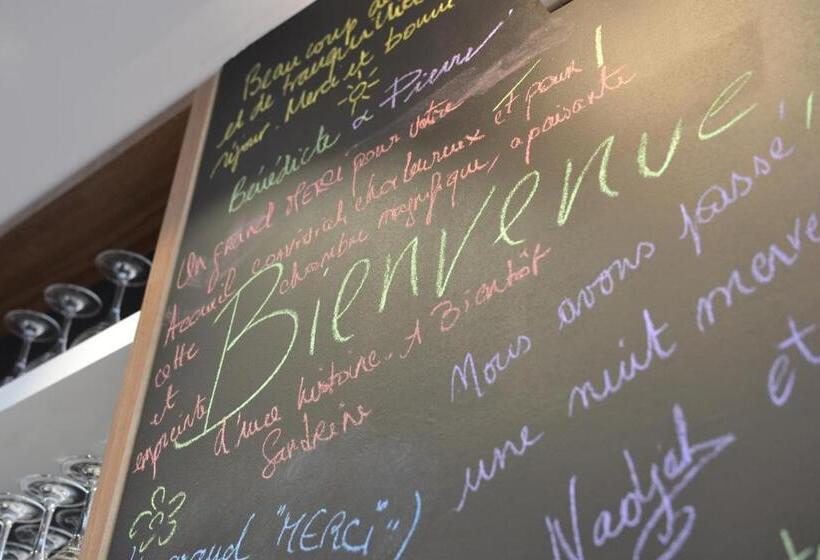 Beaucoup de
et de tranquillité
séjour. Merci et bonne
Bénédicte à Pierre
Un grand MERCI pour votre
Accueil convivial, chaleureux et pour
cette chambre magnifique, apaisante
et
empreinte d'une histoire. A Bientôt
Sandrine
Bienvenue !
Nous avons passé
une nuit merve
et
Nadjah
grand "MERCi" :)